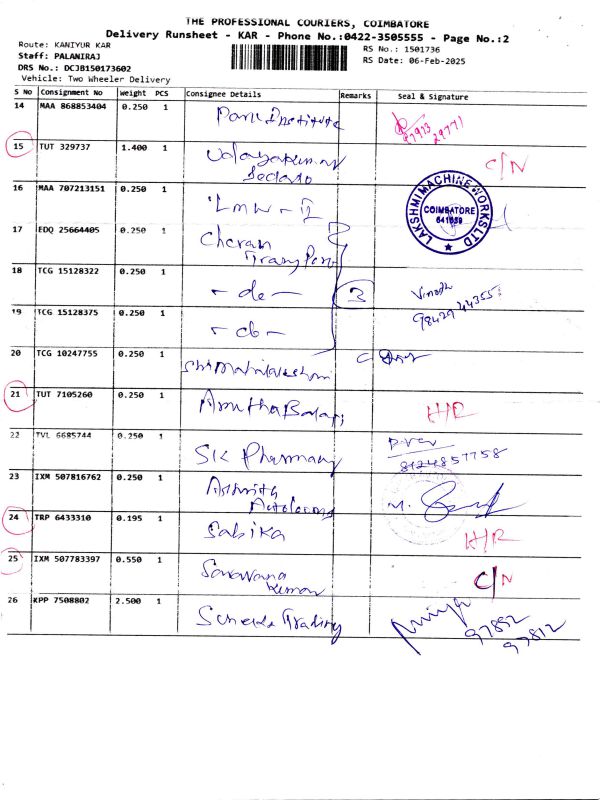 THE PROFESSIONAL COURIERS, COIMBATORE
Delivery Runsheet - KAR - Phone No.:0422-3505555 - Page No.:2
Route: KANIYUR KAR
RS No.: 1501736
Staff: PALANIRAJ
RS Date: 06-Feb-2025
DRS No.: DCJB150173602
Vehicle: Two Wheeler Delivery
S No Consignment No Weight PCS Consignee Details Remarks Seal & Signature
14 MAA 868853404 0.250 1 Park Institute
15 TUT 329737 1.400 1 Udayakumar C/N
16 MAA 707213151 0.250 1 LMW - II
LAKSHMI MACHINE WORKS LTD
COIMBATORE
641659
17 EDQ 25664405 0.250 1 Cheran
18 TCG 15128322 0.250 1 - do - 3 Vinoth
19 TCG 15128375 0.250 1 - do -
20 TCG 10247755 0.250 1 Shri Mahalakshmi
21 TUT 7105260 0.250 1 Amutha Balaji H/R
22 TVL 6685744 0.250 1 SK Pharmacy
8124857758
23 IXM 507816762 0.250 1 M.
24 TRP 6433310 0.195 1 Sabika H/R
25 IXM 507783397 0.550 1 Saravana
Kumar C/N
26 KPP 7508802 2.500 1 Trading
97892
97812